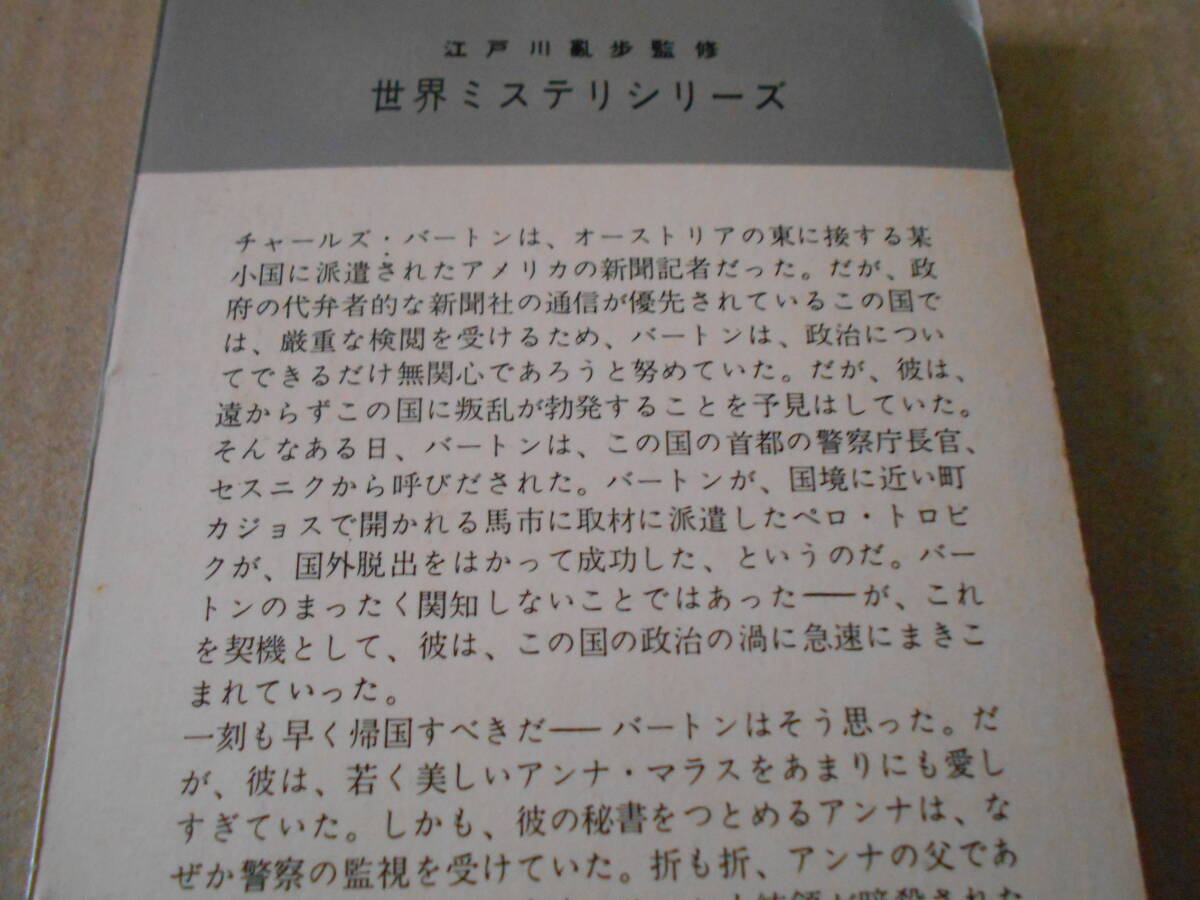 江戸川亂歩監修
世界ミステリシリーズ
チャールズ・バートンは、オーストリアの東に接する某
小国に派遣されたアメリカの新聞記者だった。だが、政
府の代弁者的な新聞社の通信が優先されているこの国で
は、厳重な検閲を受けるため、バートンは、政治につい
てできるだけ無関心であろうと努めていた。だが、彼は、
遠からずこの国に叛乱が勃発することを予見はしていた。
そんなある日、バートンは、この国の首都の警察庁長官、
セスニクから呼びだされた。バートンが、国境に近い町
カジョスで開かれる馬市に取材に派遣したペロ・トロビ
クが、国外脱出をはかって成功した、というのだ。バー
トンのまったく関知しないことではあった——が、これ
を契機として、彼は、この国の政治の渦に急速にまきこ
まれていった。
一刻も早く帰国すべきだ——バートンはそう思った。だ
が、彼は、若く美しいアンナ・マラスをあまりにも愛し
すぎていた。しかも、彼の秘書をつとめるアンナは、な
ぜか警察の監視を受けていた。折も折、アンナの父であ
大統領が暗殺された